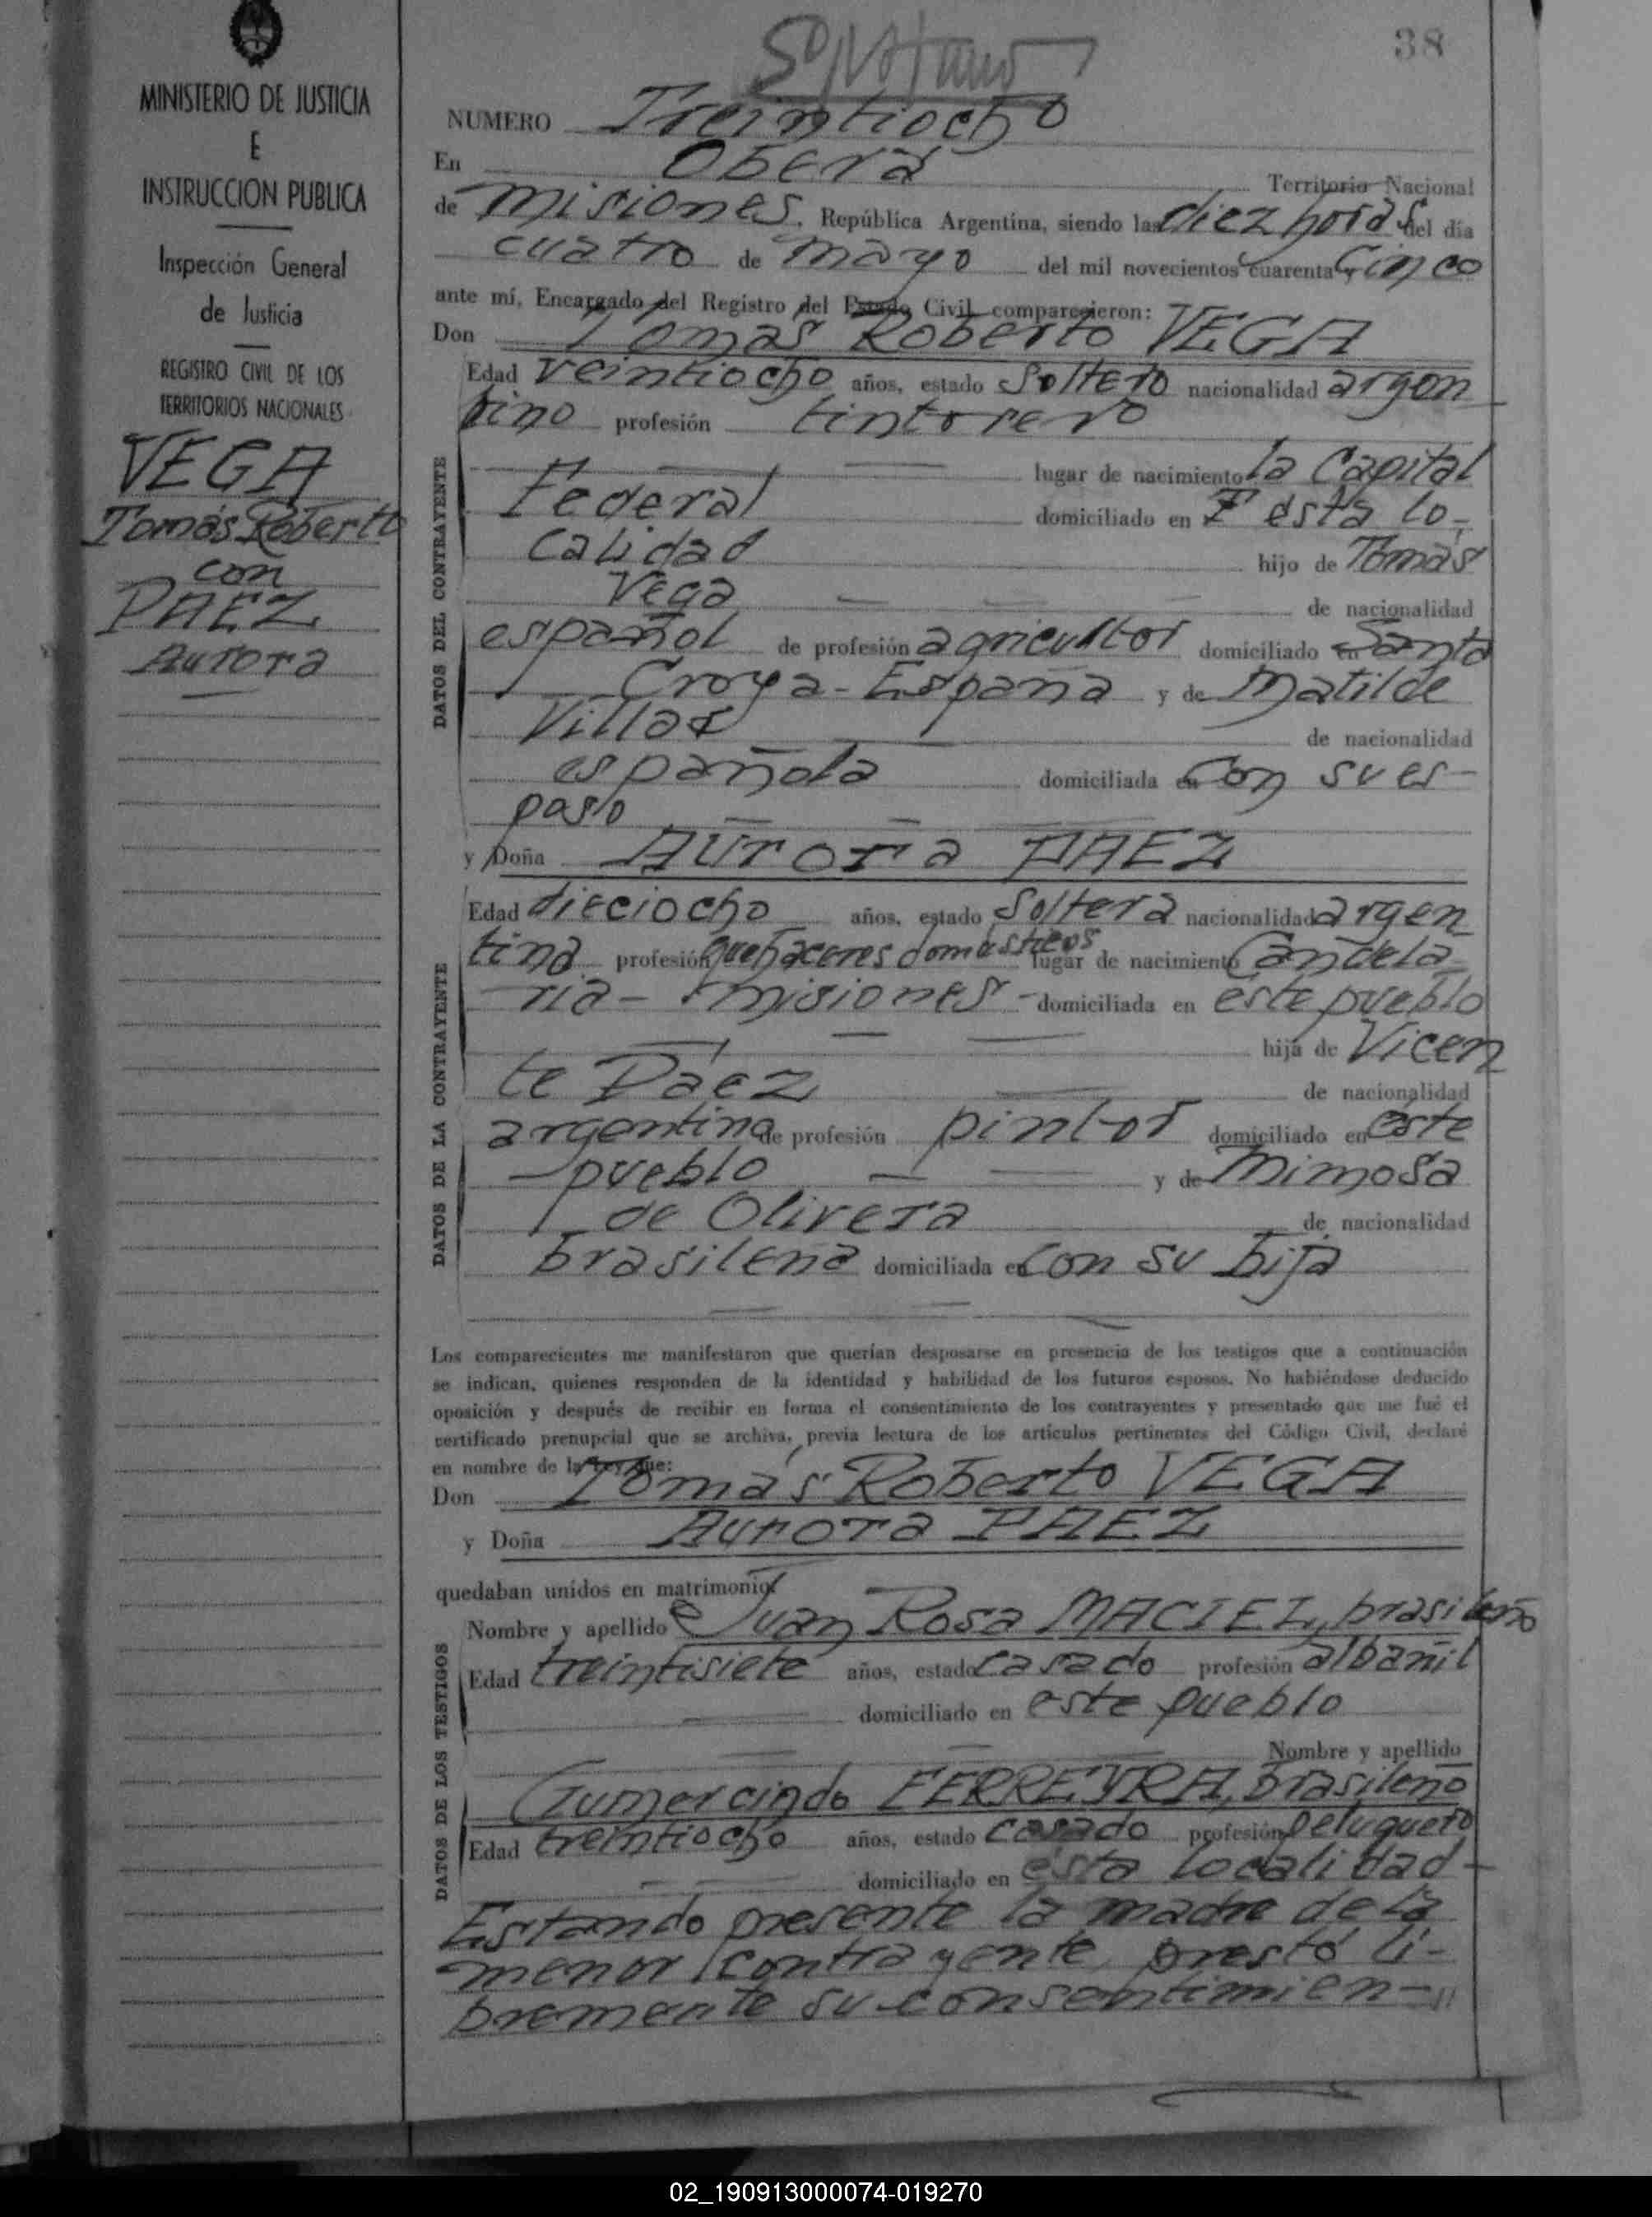 38
MINISTERIO DE JUSTICIA
E
INSTRUCCION PUBLICA
Inspección General
de Justicia
REGISTRO CIVIL DE LOS
TERRITORIOS NACIONALES
VEGA
Tomás Roberto
con
PAEZ
Aurora
NUMERO Treintiocho
En Oberá Territorio Nacional
de Misiones, República Argentina, siendo las diez horas del día
cuatro de mayo del mil novecientos cuarenta y cinco
ante mí, Encargado del Registro del Estado Civil comparecieron:
Don Tomás Roberto VEGA
Edad veintiocho años, estado soltero nacionalidad argen
tino profesión tintorero
DATOS DEL CONTRAYENTE
lugar de nacimiento la Capital
Federal domiciliado en esta lo-
calidad hijo de Tomás
Vega de nacionalidad
español de profesión agricultor domiciliado en Santa
Croya - España y de Matilde
Villar de nacionalidad
española domiciliada en con su es-
poso
y Doña Aurora PAEZ
DATOS DE LA CONTRAYENTE
Edad dieciocho años, estado soltera nacionalidad argen
tina profesión quehaceres domésticos lugar de nacimiento Candela
ria - Misiones - domiciliada en este pueblo
hija de Vicen
te Paez de nacionalidad
argentina de profesión pintor domiciliado en este
pueblo y de Mimosa
de Olivera de nacionalidad
brasileña domiciliada en con su hija
Los comparecientes me manifestaron que querían desposarse en presencia de los testigos que a continuación
se indican, quienes responden de la identidad y habilidad de los futuros esposos. No habiéndose deducido
oposición y después de recibir en forma el consentimiento de los contrayentes y presentado que me fué el
certificado prenupcial que se archiva, previa lectura de los artículos pertinentes del Código Civil, declaré
en nombre de la Ley que:
Don Tomás Roberto VEGA
y Doña Aurora PAEZ
quedaban unidos en matrimonio
DATOS DE LOS TESTIGOS
Nombre y apellido Juan Rosa MACIEL, brasileño
Edad treintisiete años, estado casado profesión albañil
domiciliado en este pueblo
Nombre y apellido
Gumercindo FERREYRA, brasileño
Edad treintiocho años, estado casado profesión peluquero
domiciliado en esta localidad -
Estando presente la madre de la
menor contrayente, prestó li-
bremente su consentimien-//
02_190913000074-019270